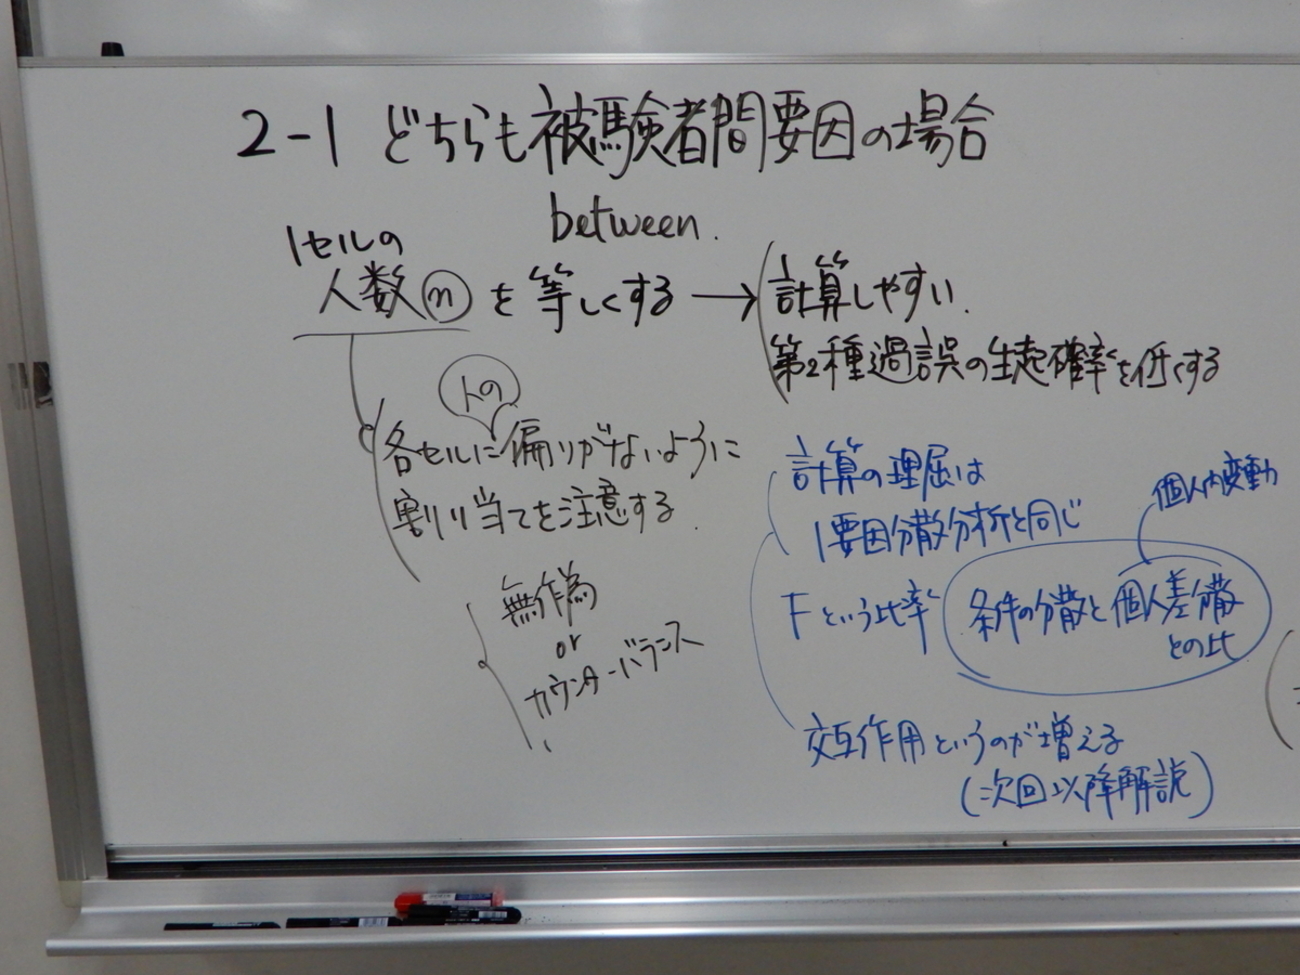 2-1 どちらも被験者間要因の場合
between.
1セルの
人数 n を等しくする → 計算しやすい.
第2種過誤の生起確率を低くする
人の
各セルに偏りがないように
割り当てを注意する.
無作為
or
カウンターバランス
計算の理屈は
1要因分散分析と同じ
個人内変動
Fという比率 条件の分散と個人差分散
との比
交互作用というのが増える
(次回以降解説)